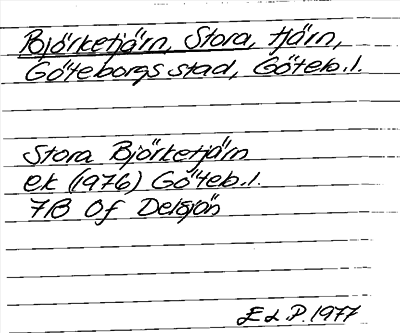 Björketjärn, Stora, tjärn,
Göteborgs stad, Göteb. l.
Stora Björketjärn
ek (1976) Göteb. l.
7B 0f Delsjön
E d. P. 1977